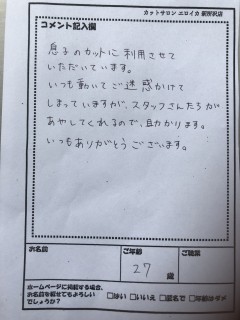 カットサロン エロイカ 新所沢店
コメント記入欄
息子のカットに利用させて
いただいています。
いつも動いてご迷惑かけて
しまっていますが、スタッフさんたちが
あやしてくれるので、助かります。
いつもありがとうございます。
お名前
ご年齢
ご職業
27 歳
ホームページに掲載する場合、
お名前を載せてもよろしい
でしょうか?
□はい □いいえ □匿名で □年齢はダメ